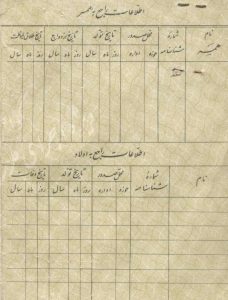 اطلاعات راجع به همسر
نام همسر شمارهٔ شناسنامه محل صدور تاریخ تولد تاریخ ازدواج تاریخ طلاق یا وفات
حوزه اداره روز ماه سال روز ماه سال روز ماه سال
اطلاعات راجع به اولاد
نام شمارهٔ شناسنامه محل صدور تاریخ تولد تاریخ وفات
حوزه اداره روز ماه سال روز ماه سال